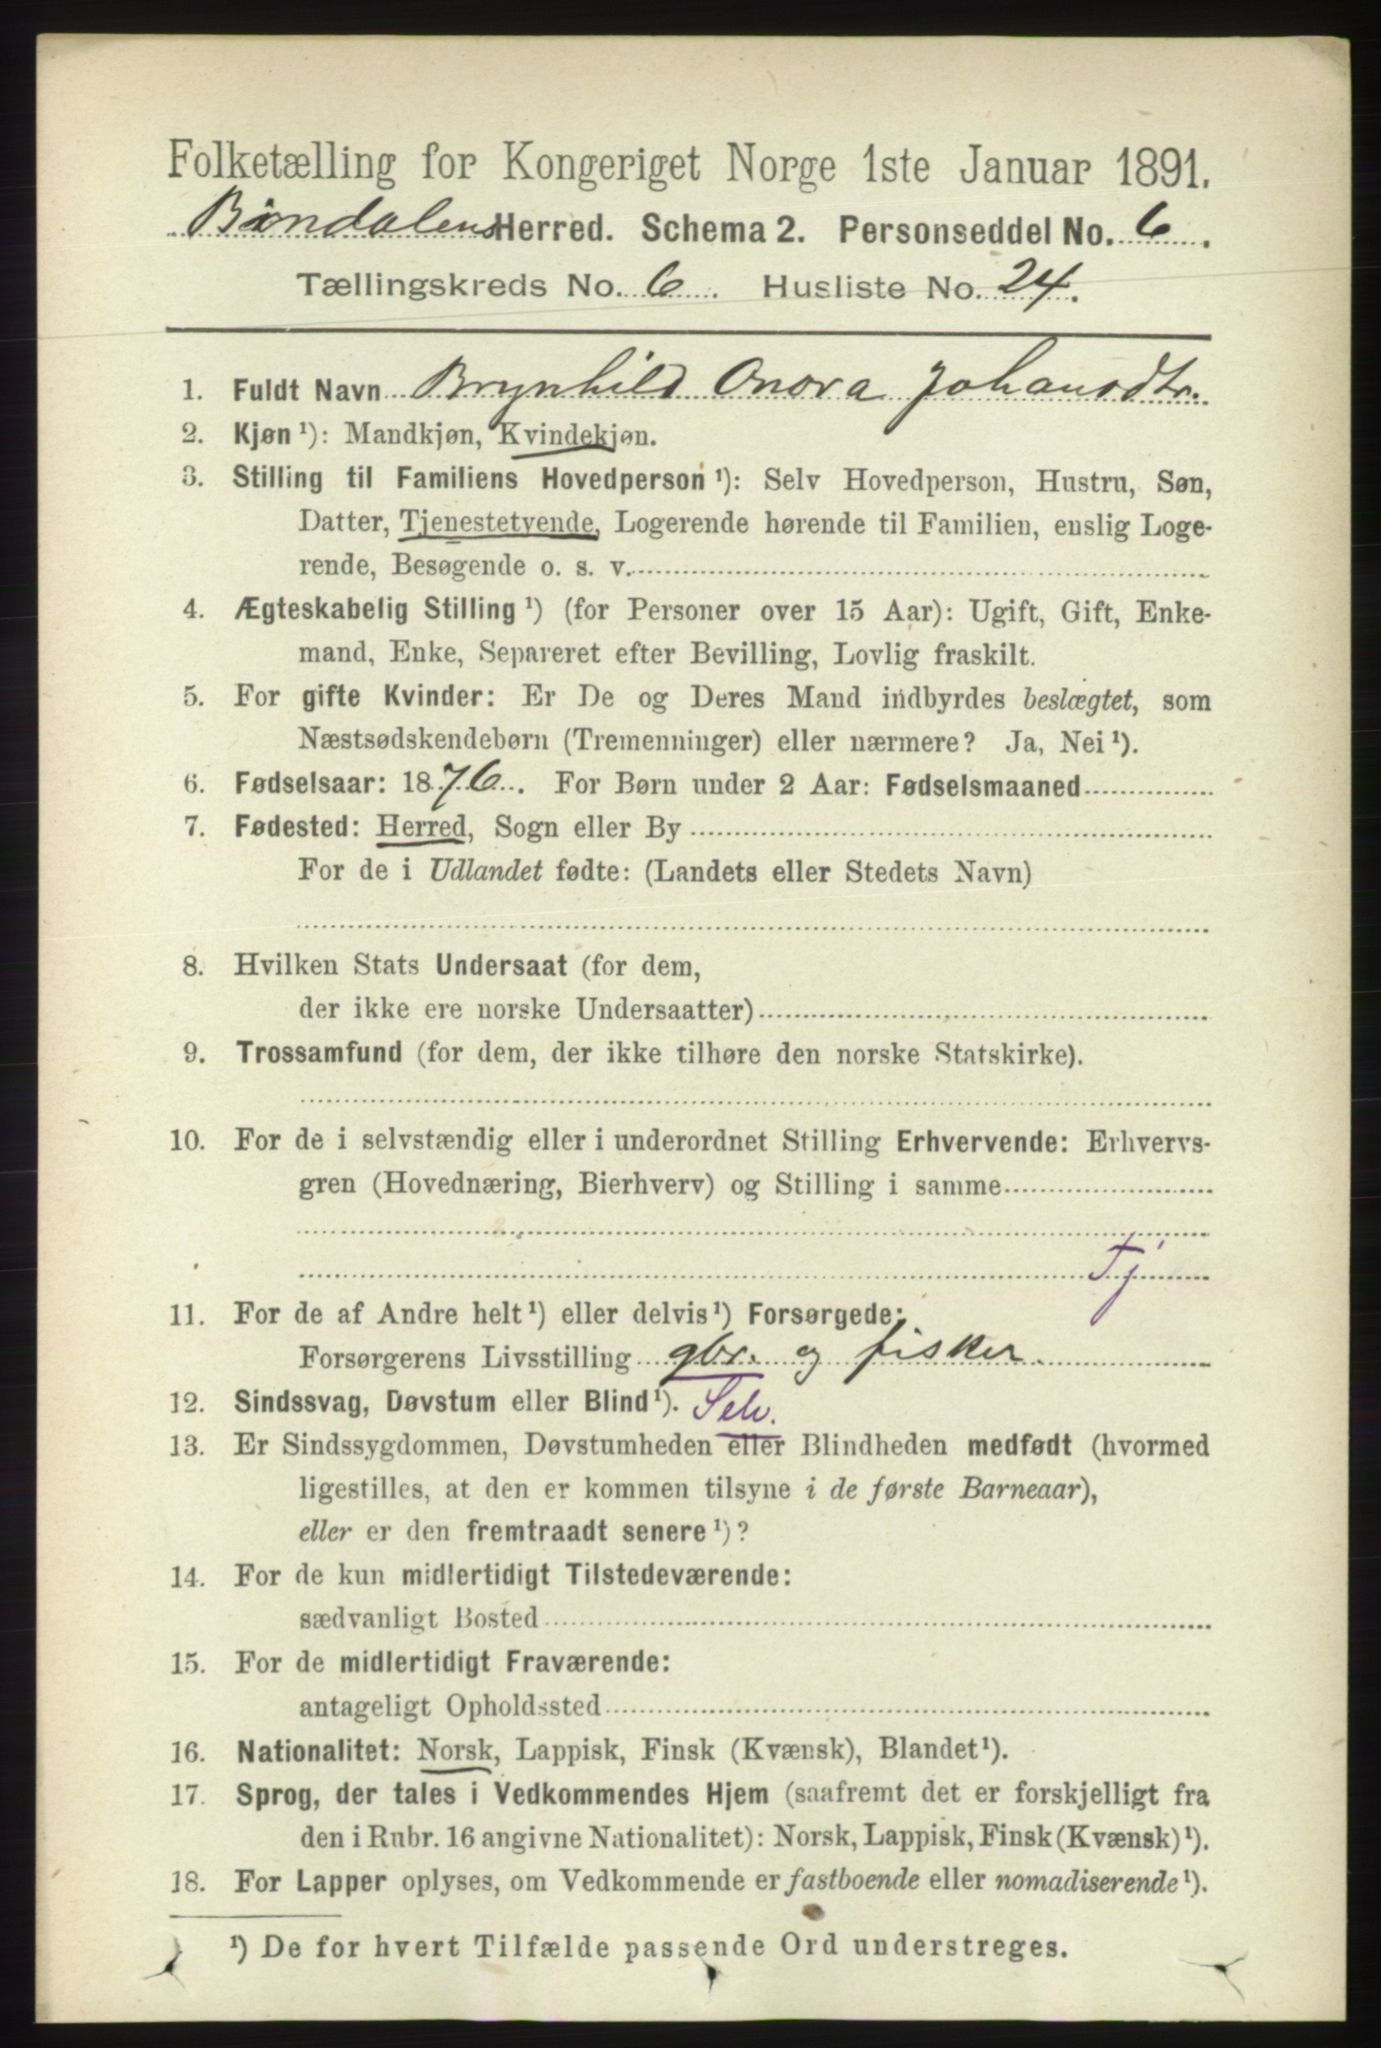 Folketælling for Kongeriget Norge 1ste Januar 1891.
Bindalens Herred. Schema 2. Personseddel No. 6.
Tællingskreds No. 6. Husliste No. 24.
1. Fuldt Navn Brynhild Onora Johansdtr.
2. Kjøn ¹): Mandkjøn, Kvindekjøn.
3. Stilling til Familiens Hovedperson ¹): Selv Hovedperson, Hustru, Søn,
Datter, Tjenestetyende, Logerende hørende til Familien, enslig Loge-
rende, Besøgende o. s. v.
4. Ægteskabelig Stilling ¹) (for Personer over 15 Aar): Ugift, Gift, Enke-
mand, Enke, Separeret efter Bevilling, Lovlig fraskilt.
5. For gifte Kvinder: Er De og Deres Mand indbyrdes beslægtet, som
Næstsødskendebørn (Tremenninger) eller nærmere? Ja, Nei ¹).
6. Fødselsaar: 1876. For Børn under 2 Aar: Fødselsmaaned
7. Fødested: Herred, Sogn eller By
For de i Udlandet fødte: (Landets eller Stedets Navn)
8. Hvilken Stats Undersaat (for dem,
der ikke ere norske Undersaatter)
9. Trossamfund (for dem, der ikke tilhøre den norske Statskirke).
10. For de i selvstændig eller i underordnet Stilling Erhvervende: Erhvervs-
gren (Hovednæring, Bierhverv) og Stilling i samme
Tj
11. For de af Andre helt ¹) eller delvis ¹) Forsørgede:
Forsørgerens Livsstilling gbr. og fisker
12. Sindssvag, Døvstum eller Blind ¹). Selv.
13. Er Sindssygdommen, Døvstumheden eller Blindheden medfødt (hvormed
ligestilles, at den er kommen tilsyne i de første Barneaar),
eller er den fremtraadt senere ¹)?
14. For de kun midlertidigt Tilstedeværende:
sædvanligt Bosted
15. For de midlertidigt Fraværende:
antageligt Opholdssted
16. Nationalitet: Norsk, Lappisk, Finsk (Kvænsk), Blandet ¹).
17. Sprog, der tales i Vedkommendes Hjem (saafremt det er forskjelligt fra
den i Rubr. 16 angivne Nationalitet): Norsk, Lappisk, Finsk (Kvænsk) ¹).
18. For Lapper oplyses, om Vedkommende er fastboende eller nomadiserende ¹).
¹) De for hvert Tilfælde passende Ord understreges.